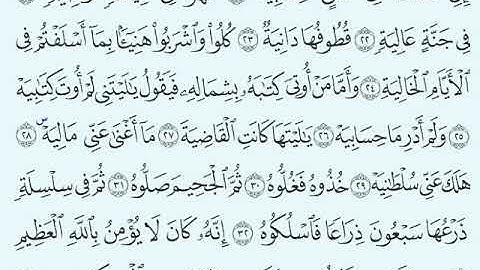 فِي جَنَّةٍ عَالِيَةٍ ٢٢ قُطُوفُهَا دَانِيَةٌ ٢٣ كُلُوا۟ وَٱشْرَبُوا۟ هَنِيٓـًٔۢا بِمَآ أَسْلَفْتُمْ فِي
ٱلْأَيَّامِ ٱلْخَالِيَةِ ٢٤ وَأَمَّا مَنْ أُوتِيَ كِتَٰبَهُۥ بِشِمَالِهِۦ فَيَقُولُ يَٰلَيْتَنِي لَمْ أُوتَ كِتَٰبِيَهْ
٢٥ وَلَمْ أَدْرِ مَا حِسَابِيَهْ ٢٦ يَٰلَيْتَهَا كَانَتِ ٱلْقَاضِيَةَ ٢٧ مَآ أَغْنَىٰ عَنِّي مَالِيَهْۜ ٢٨
هَلَكَ عَنِّي سُلْطَٰنِيَهْ ٢٩ خُذُوهُ فَغُلُّوهُ ٣٠ ثُمَّ ٱلْجَحِيمَ صَلُّوهُ ٣١ ثُمَّ فِي سِلْسِلَةٍ
ذَرْعُهَا سَبْعُونَ ذِرَاعًا فَٱسْلُكُوهُ ٣٢ إِنَّهُۥ كَانَ لَا يُؤْمِنُ بِٱللَّهِ ٱلْعَظِيمِ